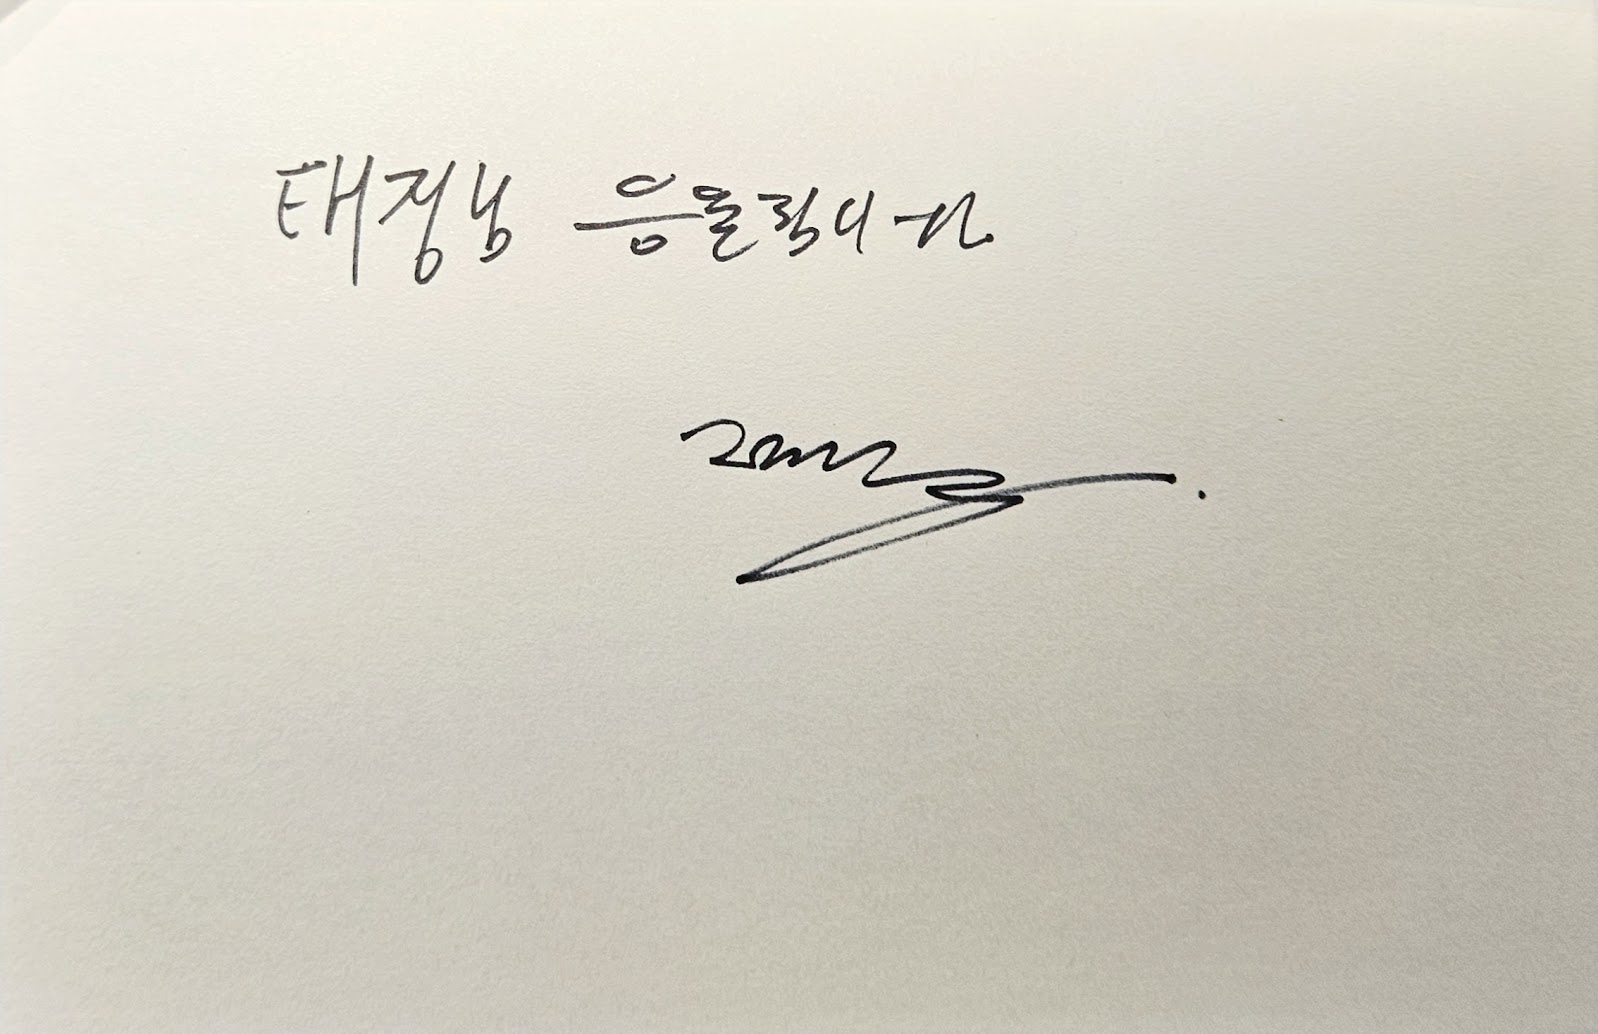 태정님 응원합니다.